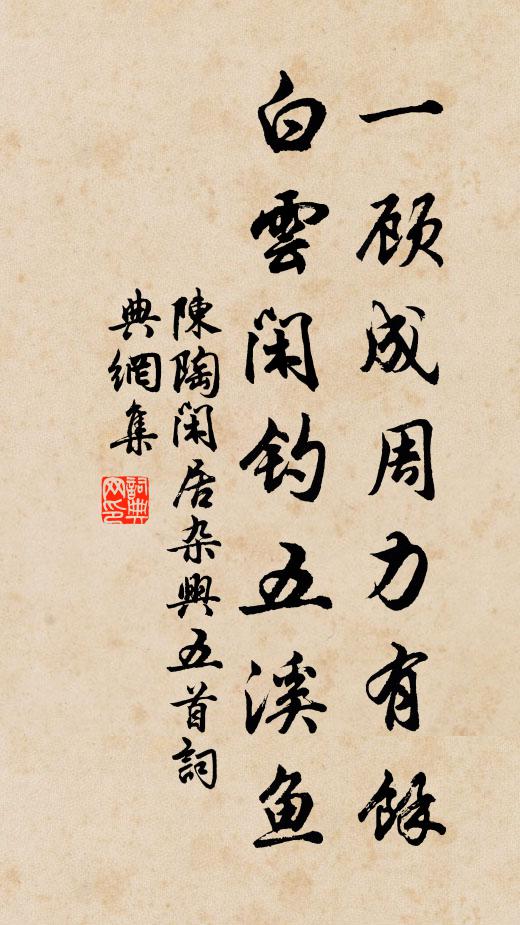 一顾成周力有餘
白雲闲钓五溪鱼
陳陶闲居杂興五首詞
典網集
詞典
网印